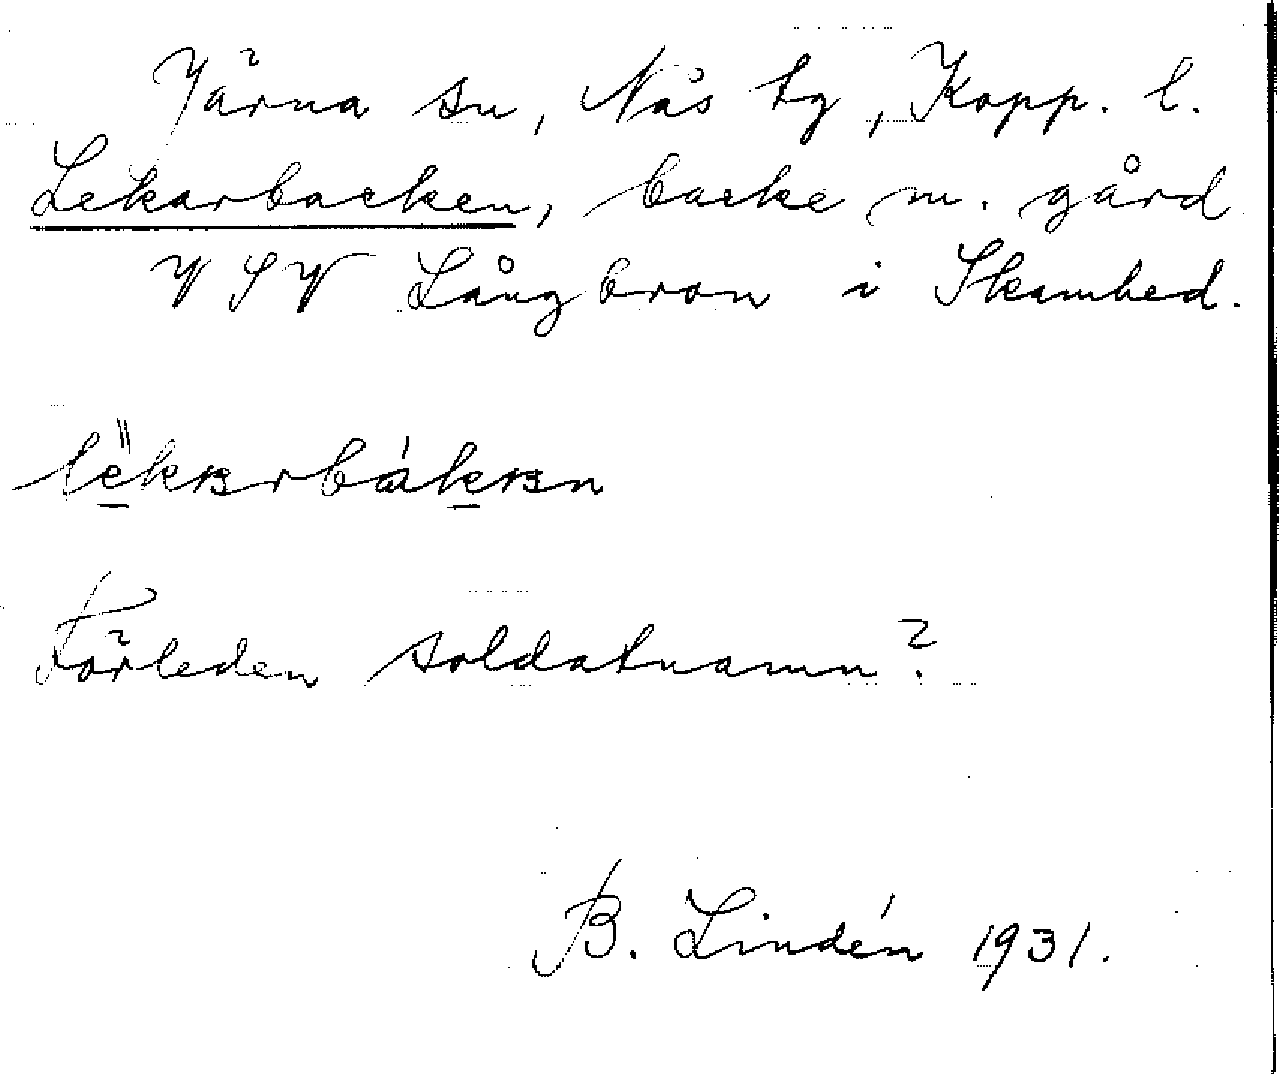 Järna sn, Nås tg, Kopp. l.
Lekarbacken, backe m. gård
VSV Långbron i Skamhed.
Förleden soldatnamn?
B. Lindén 1931.